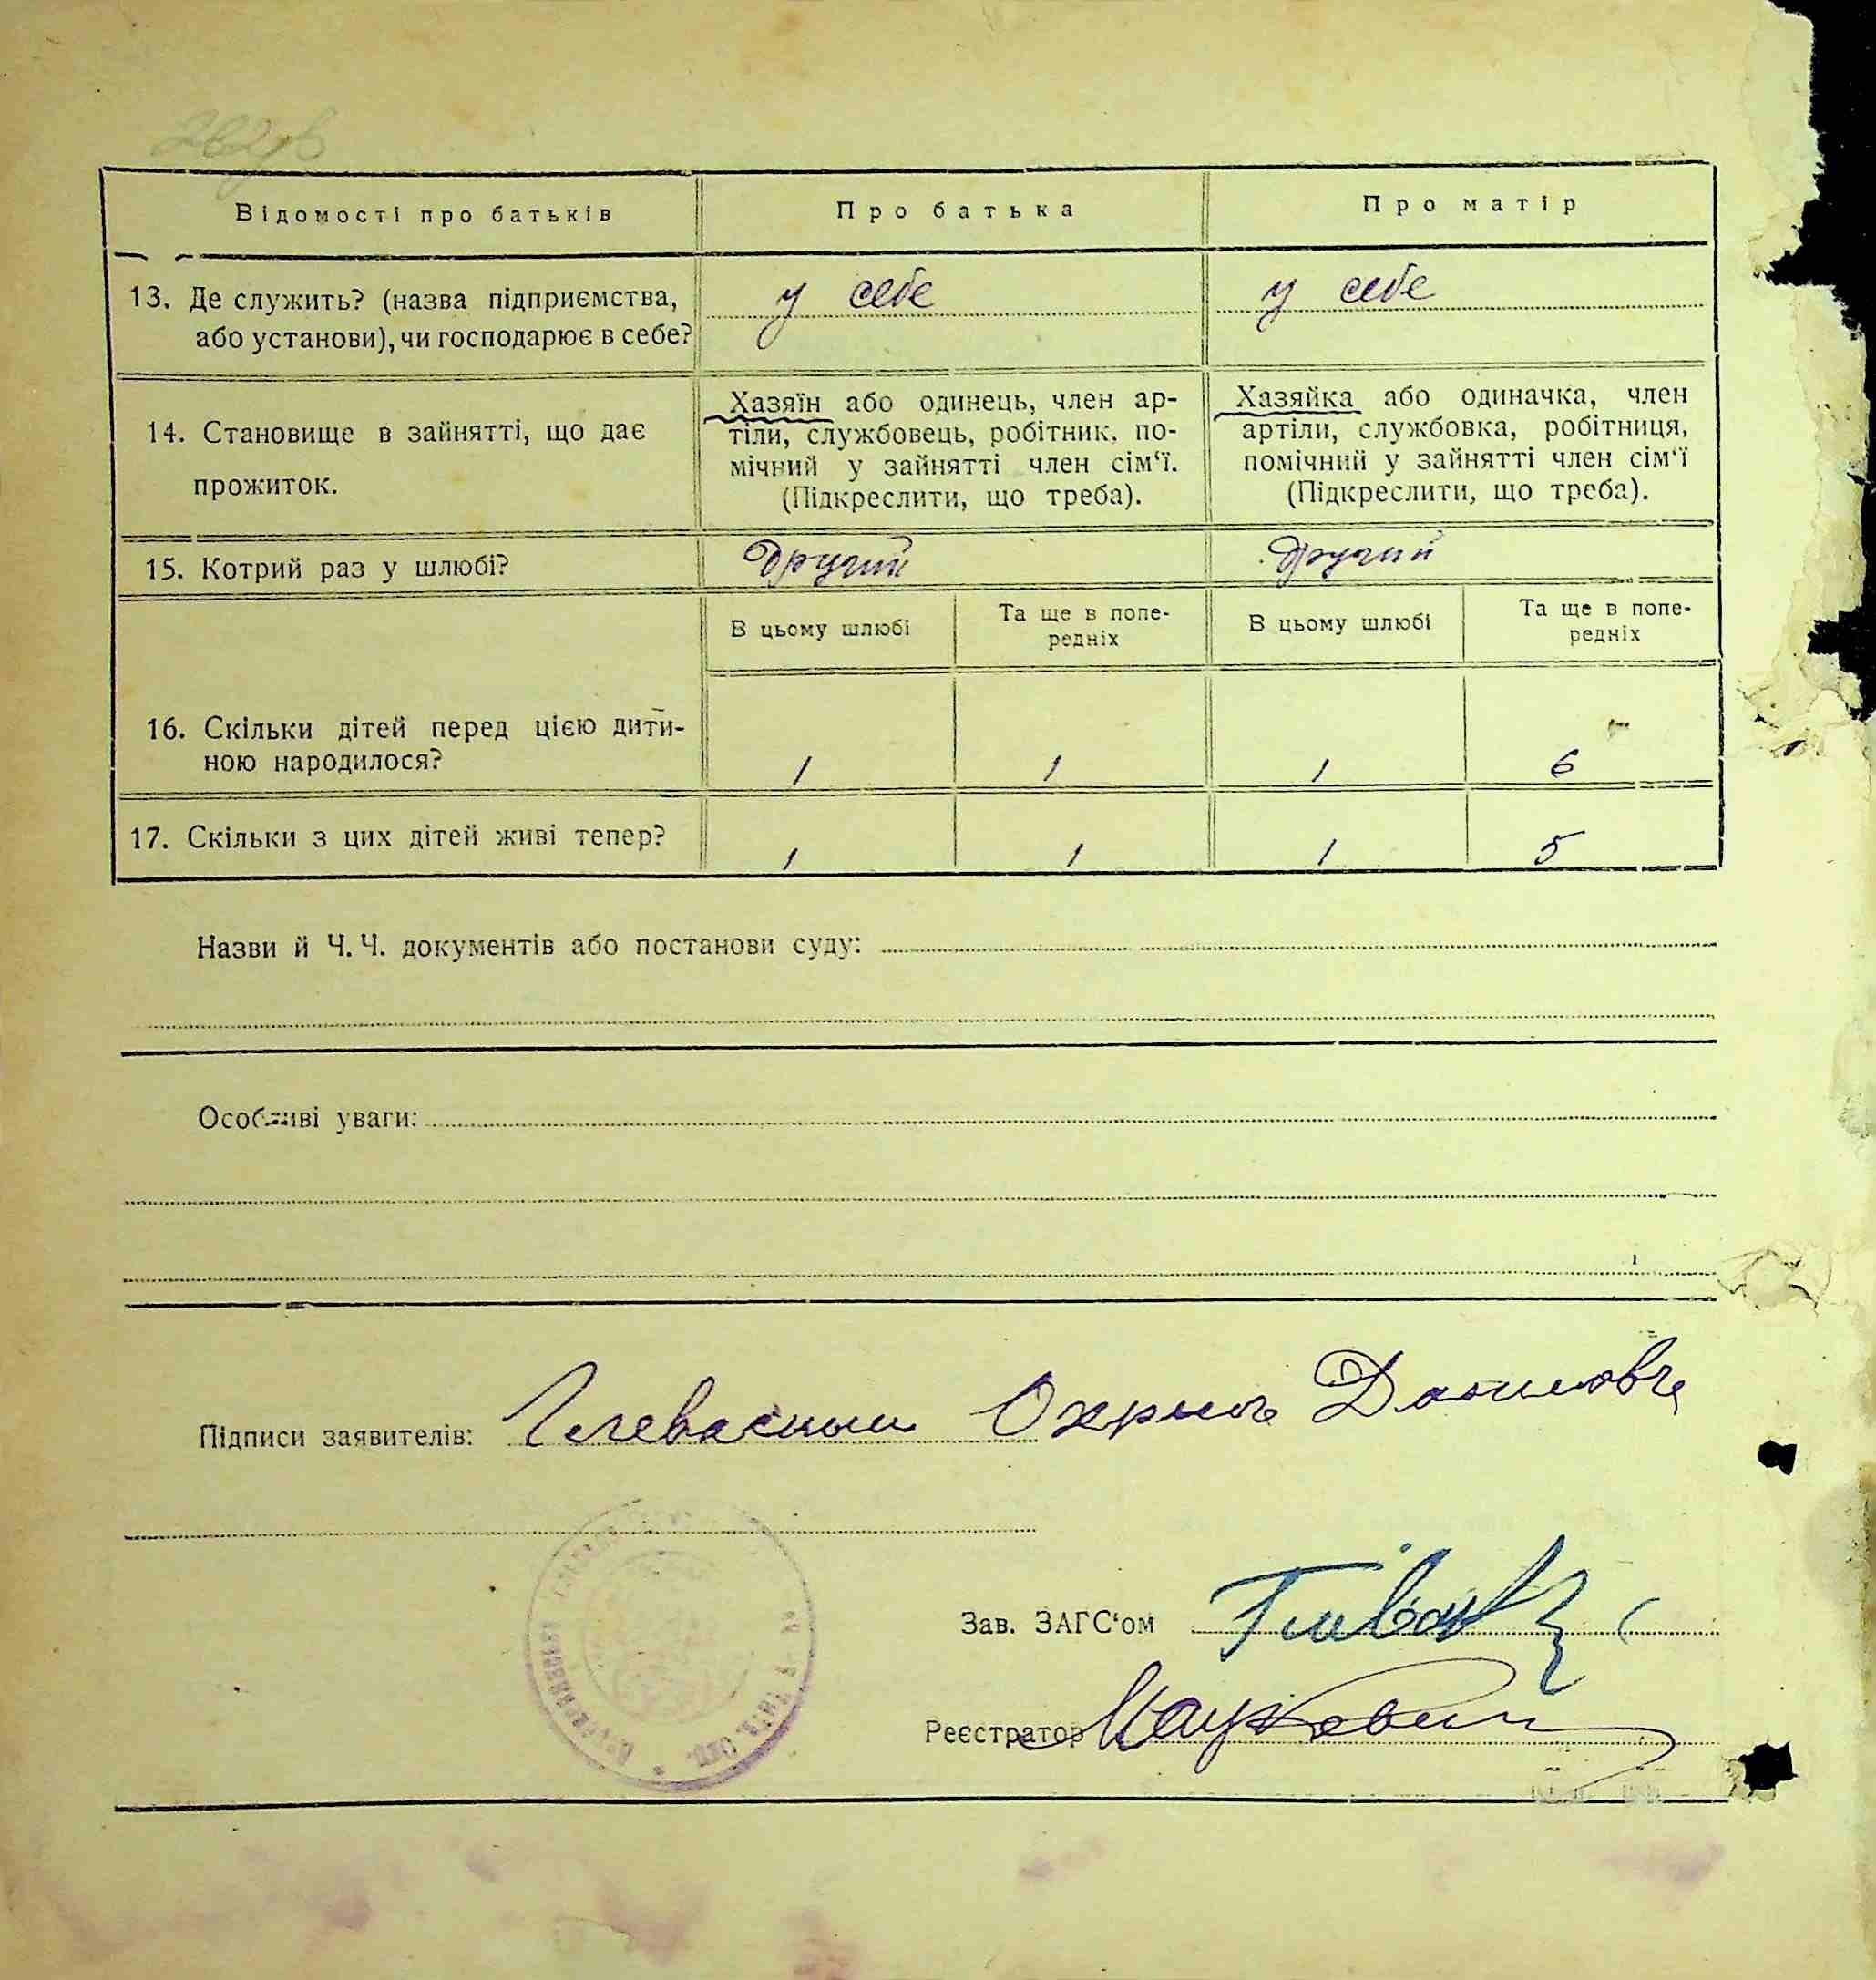 Відомості про батьків
Про батька
Про матір
13. Де служить? (назва підприємства,
або установи), чи господарює в себе?
у себе
у себе
14. Становище в зайнятті, що дає
прожиток.
Хазяїн або одинець, член ар-
тіли, службовець, робітник, по-
мічний у зайнятті член сім‘ї.
(Підкреслити, що треба).
Хазяйка або одиначка, член
артіли, службовка, робітниця,
помічний у зайнятті член сім‘ї
(Підкреслити, що треба).
15. Котрий раз у шлюбі?
Другий
Другий
В цьому шлюбі
Та ще в попе-
редніх
В цьому шлюбі
Та ще в попе-
редніх
16. Скільки дітей перед цією дити-
ною народилося?
1 1 1 6
17. Скільки з цих дітей живі тепер?
1 1 1 5
Назви й Ч. Ч. документів або постанови суду:
Особливі уваги:
Підписи заявителів:
Зав. ЗАГС‘ом
Реєстратор